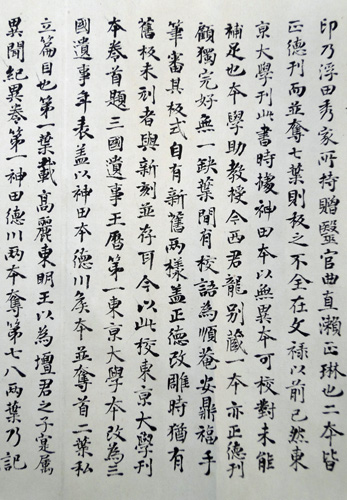 印乃浮田秀家所持贈醫官曲直瀨正琳也二本皆
正德刊而並奪七葉則板之不全在文祿以前已然東
京大學刊此書時據神田本以無異本可校對未能
補足也本學助教授今西君龍別藏一本亦正德刊
顧獨完好無一缺葉間有校語為順菴安鼎福手
筆審其板式自有新舊兩樣蓋正德改雕時猶有
舊板未刻者與新刻並存耳今以此校東京大學刊
本卷首題三國遺事王曆第一東京大學本改為三
國遺事年表盖以神田本德川矦本並奪首二葉私
立篇目也第一葉載高麗東明王以為壇君之子寔屬
異聞紀異卷第一神田德川兩本奪第七八兩葉乃記